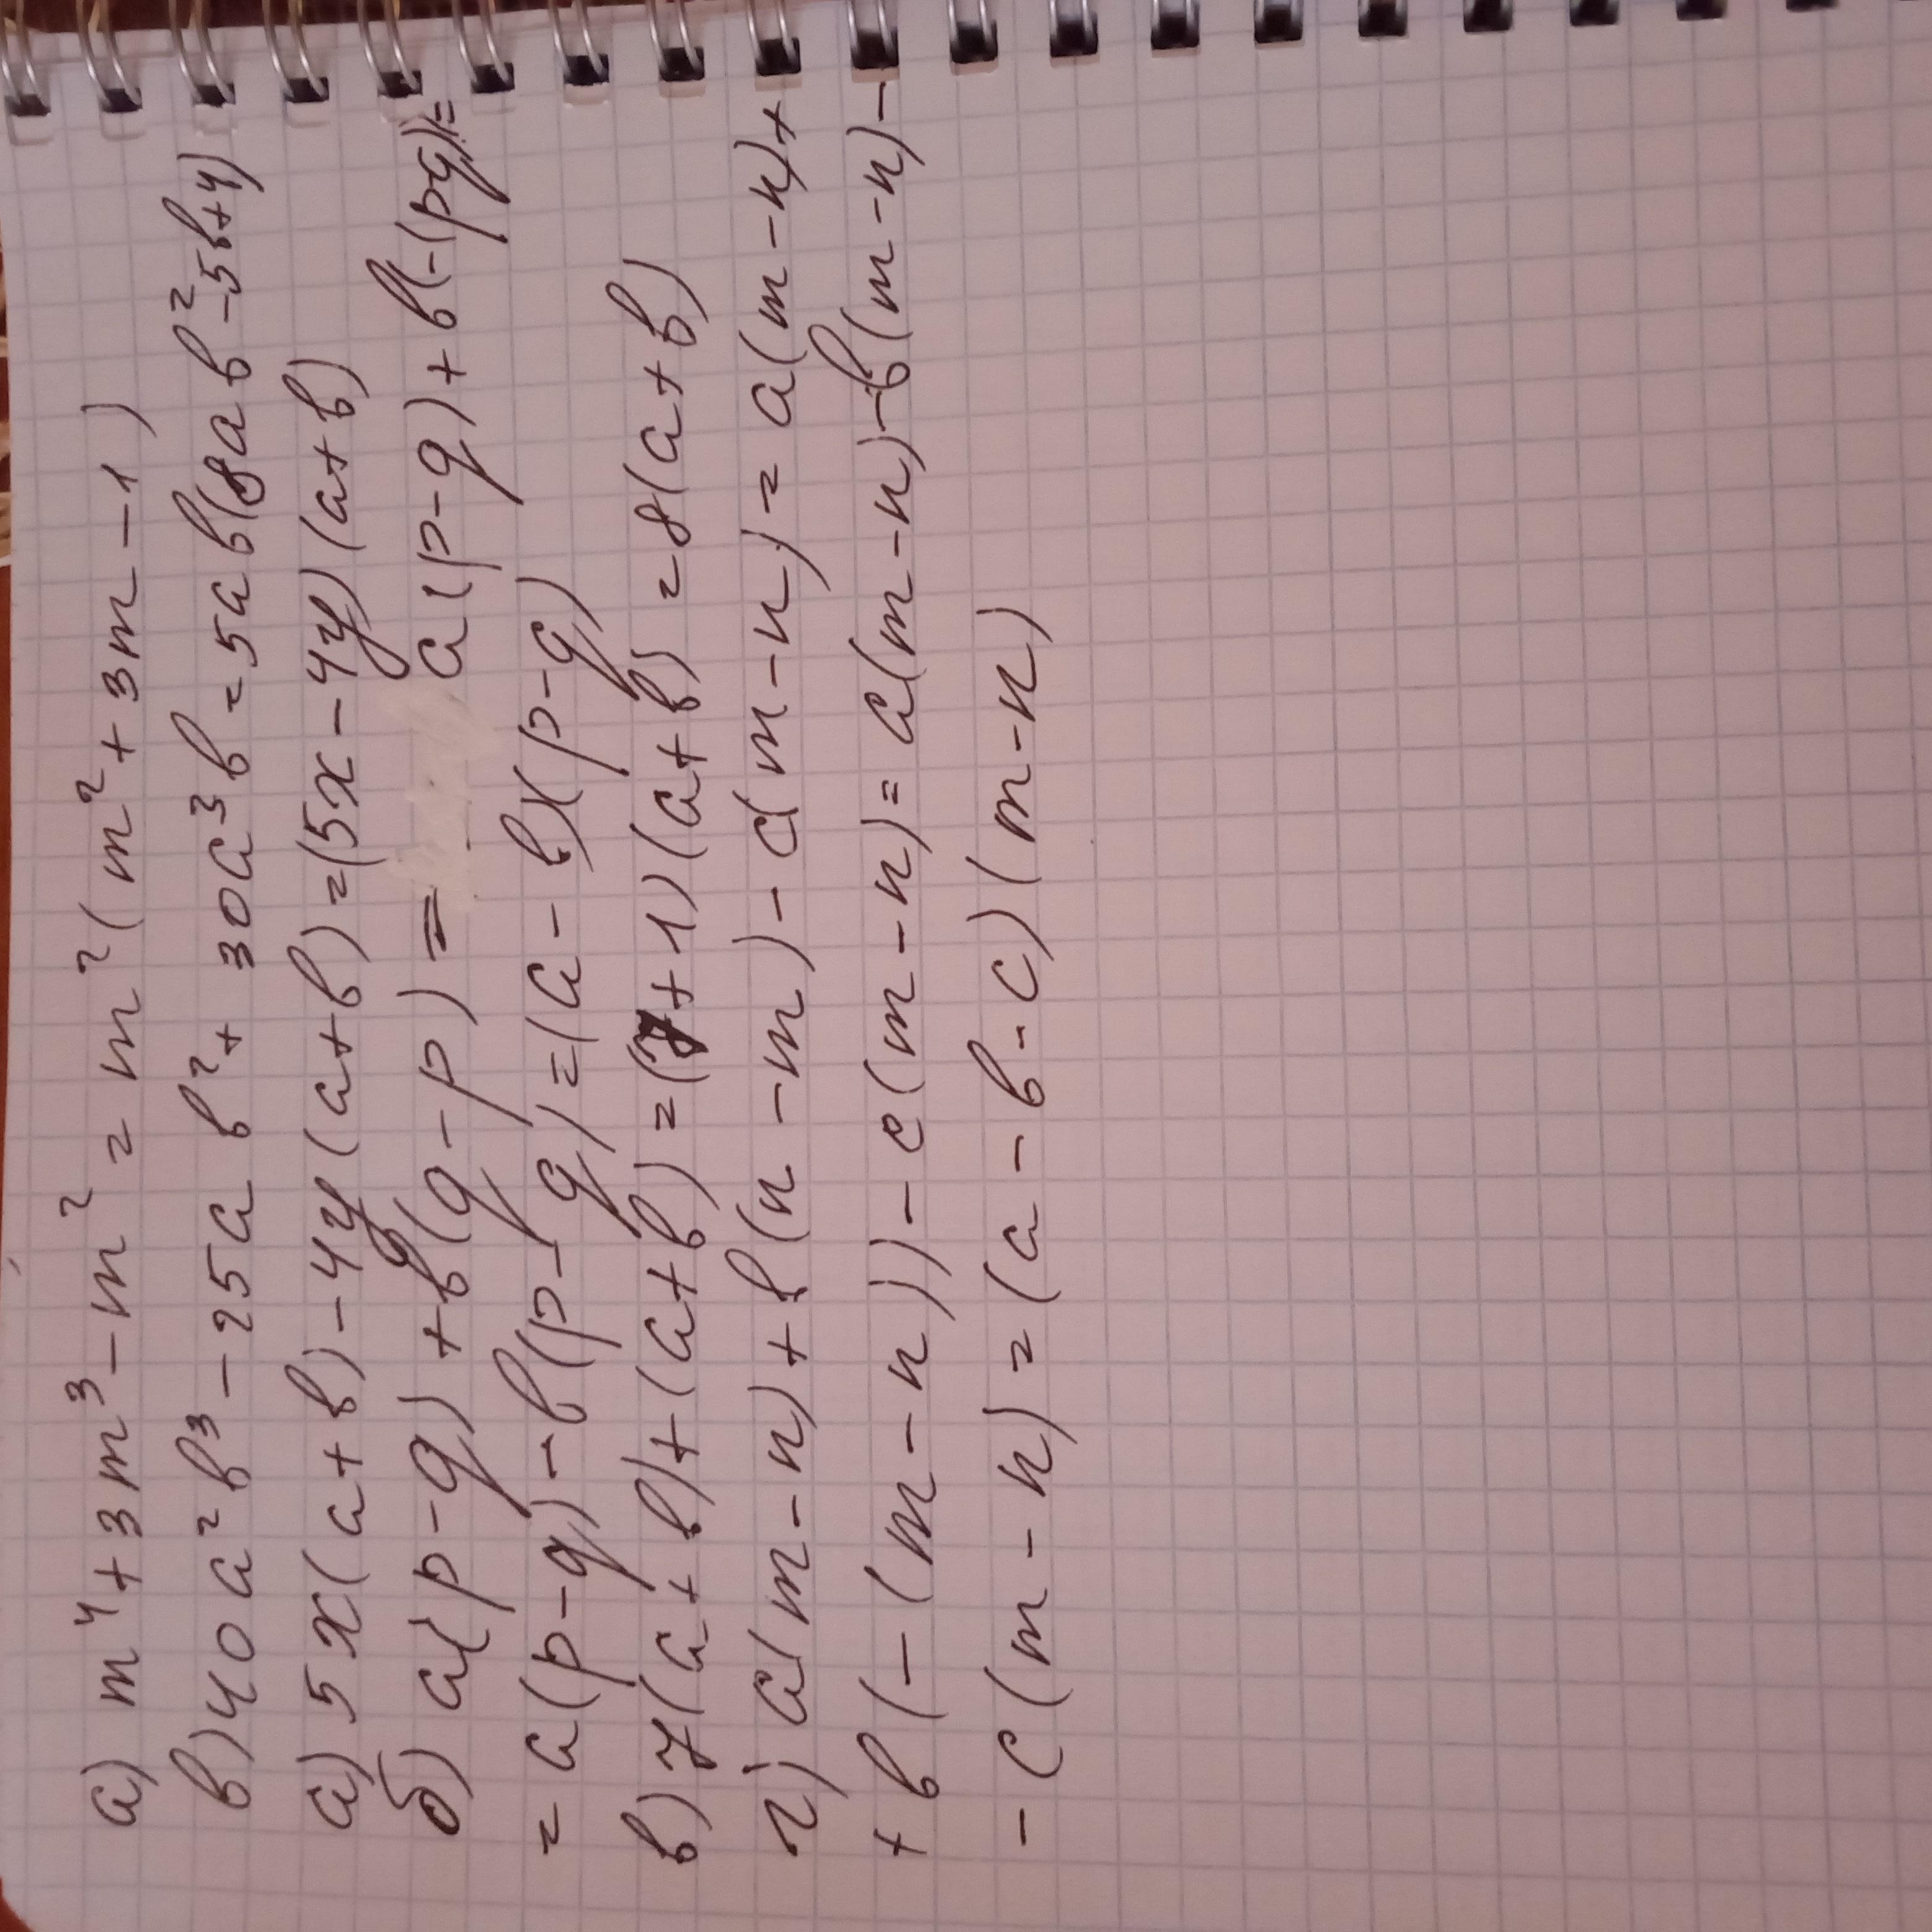 а) m⁴ + 3m³ - m² = m² (m² + 3m - 1)
в) 40a²b³ - 25ab² + 30a³b = 5ab(8ab² - 5b + 4)
а) 5x(a + b) - 4y(a + b) = (5x - 4y)(a + b)
б) a(p - q) + b(q - p) = a(p - q) + b(-(pq)) =
= a(p - q) - b(p - q) = (a - b)(p - q)
в) 7(a + b) + (a + b) = (7 + 1)(a + b) = 8(a + b)
г) a(m - n) + b(n - m) - c(m - n) = a(m - n) +
+ b(-(m - n)) - c(m - n) = a(m - n) - b(m - n) -
- c(m - n) = (a - b - c)(m - n)